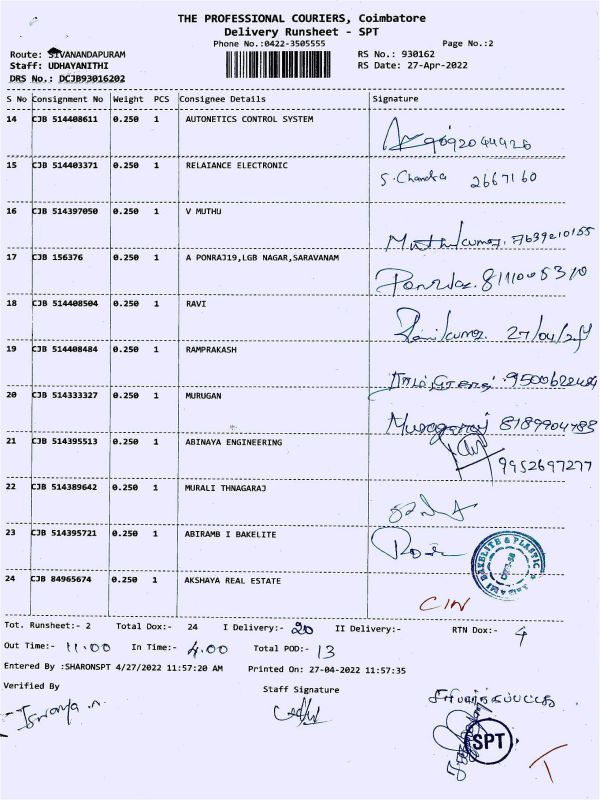 THE PROFESSIONAL COURIERS, Coimbatore
Delivery Runsheet - SPT
Phone No.:0422-3505555
Page No.:2
Route: SIVANANDAPURAM
RS No.: 930162
Staff: UDHAYANITHI
RS Date: 27-Apr-2022
DRS No.: DCJB93016202
S No Consignment No Weight PCS Consignee Details Signature
14 CJB 514408611 0.250 1 AUTONETICS CONTROL SYSTEM
15 CJB 514403371 0.250 1 RELAIANCE ELECTRONIC S. Chandra 2667160
16 CJB 514397050 0.250 1 V MUTHU Muthukumar. 7639210155
17 CJB 156376 0.250 1 A PONRAJ19,LGB NAGAR,SARAVANAM Ponraz. 8111005310
18 CJB 514408504 0.250 1 RAVI 27/04/24
19 CJB 514408484 0.250 1 RAMPRAKASH
20 CJB 514333327 0.250 1 MURUGAN Murugaraj 8189904783
21 CJB 514395513 0.250 1 ABINAYA ENGINEERING 9952697277
22 CJB 514389642 0.250 1 MURALI THNAGARAJ
23 CJB 514395721 0.250 1 ABIRAMB I BAKELITE
BAKELITE & PLASTIC
24 CJB 84965674 0.250 1 AKSHAYA REAL ESTATE CIN
Tot. Runsheet:- 2 Total Dox:- 24 I Delivery:- 20 II Delivery:- RTN Dox:- 4
Out Time:- 11.00 In Time:- 4.00 Total POD:- 13
Entered By :SHARONSPT 4/27/2022 11:57:20 AM Printed On: 27-04-2022 11:57:35
Verified By Staff Signature
SPT